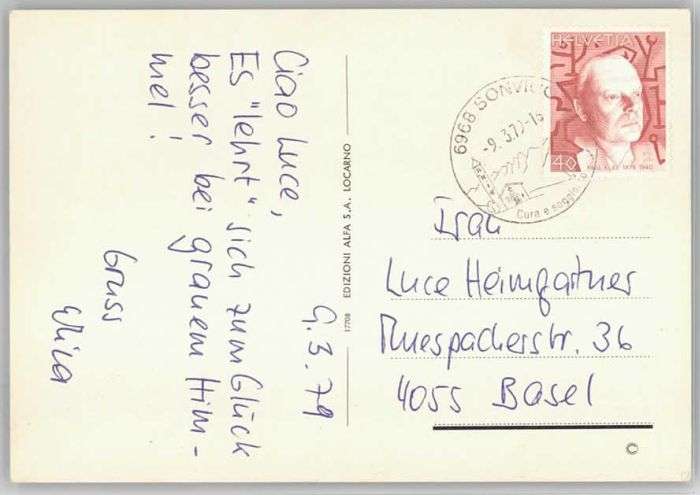 Ciao Luce,
Es "lehrt" sich zum Glück
besser bei grauem Him-
mel!
Gruss
9.3.79
17708 EDIZIONI ALFA S.A. LOCARNO
HELVETIA
40
PAUL KLEE 1879 1940
6968 SONVICO
-9.3.79-18
Cura e soggiorno
Frau
Luce Heimgartner
Thuespacherstr. 36
4055 Basel
©